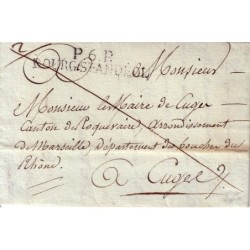 P. 6. P.
BOURG-ST-ANDÉOL
Monsieur
Monsieur le Maire de Cuges
Canton de Roquevaire, arrondissement
de Marseille, Département des bouches du
Rhône.
a Cuges